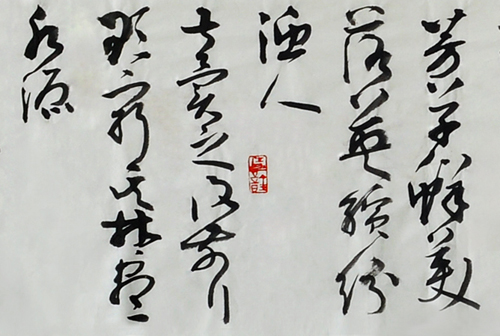 芳草鮮美
落英繽紛
漁人
甚異之復前行
欲窮其林盡
水源